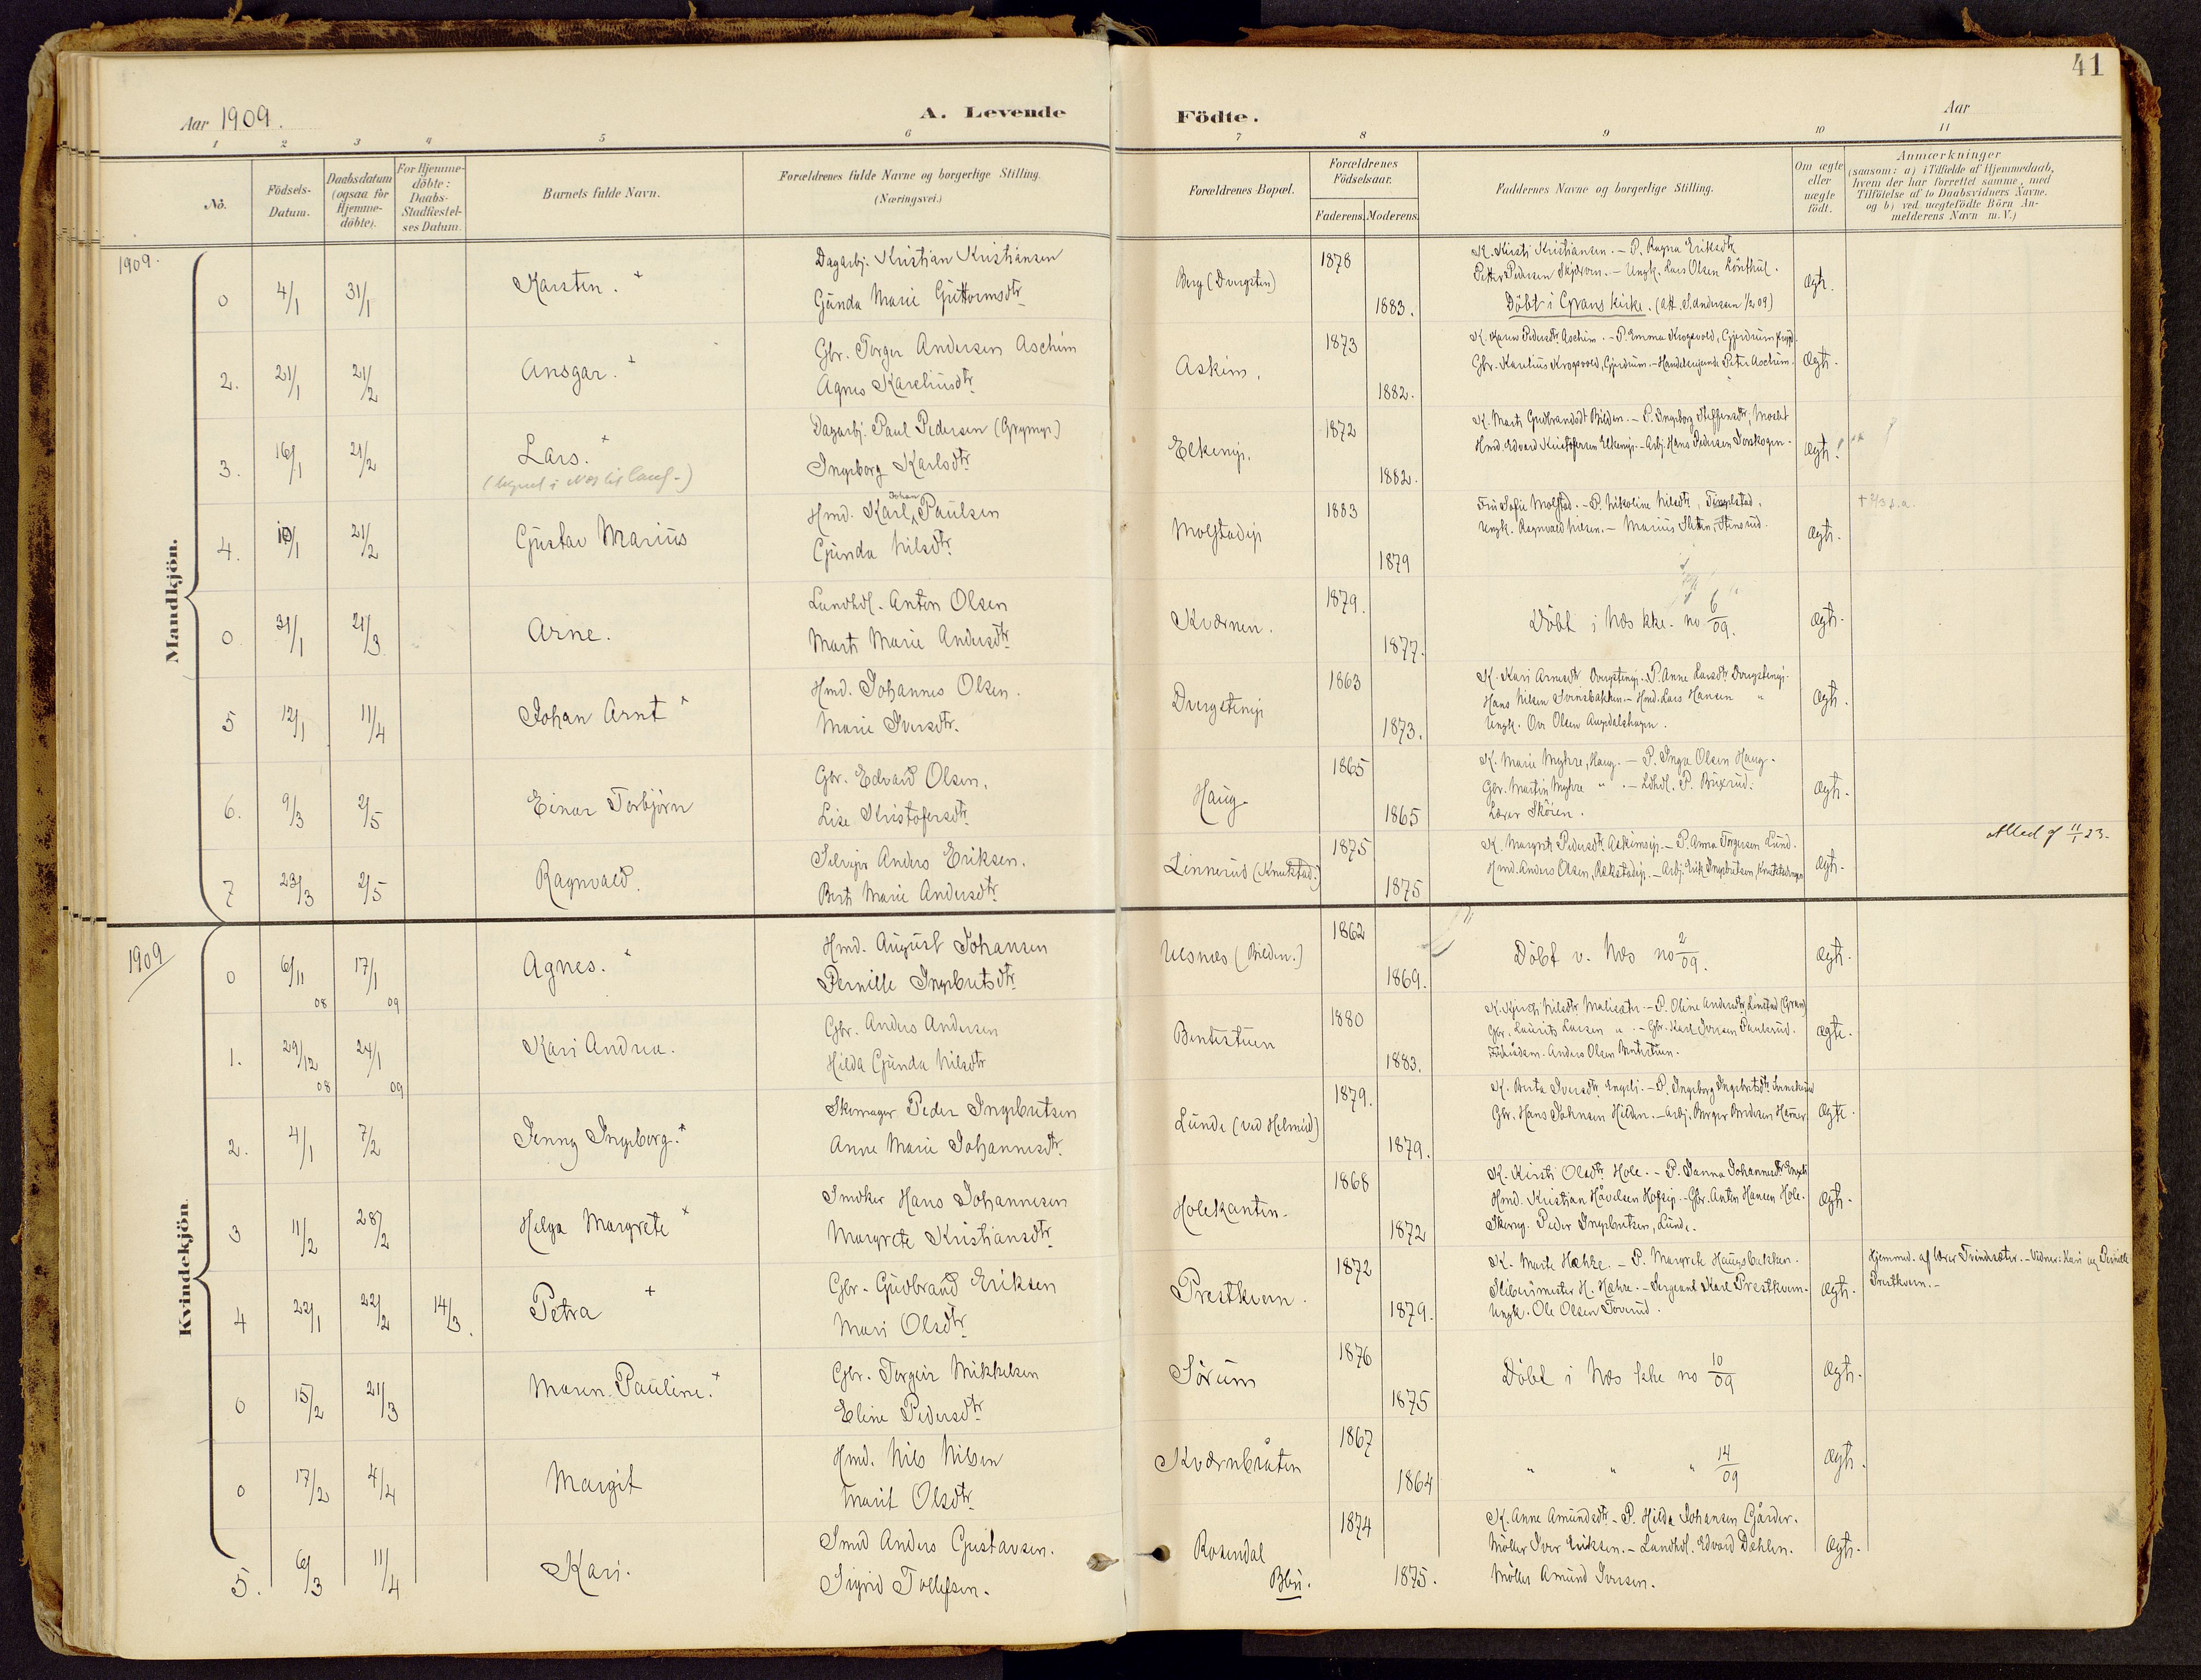 41
Aar 1909.
A. Levende
Födte.
Aar
1 2 3 4 5 6 7 8 9 10 11
No.
Födsels-Datum.
Daabsdatum (ogsaa for Hjemmedöbte).
For Hjemmedöbte: Daabs-Stadfæstelses Datum.
Barnets fulde Navn.
Forældrenes fulde Navne og borgerlige Stilling. (Næringsvei.)
Forældrenes Bopæl.
Forældrenes Födselsaar.
Faderens. Moderens.
Faddernes Navne og borgerlige Stilling.
Om ægte eller uægte födt.
Anmærkninger
(saasom: a) i Tilfælde af Hjemmedaab,
hvem der har forrettet samme, med
Tilföielse af to Daabsvidners Navne.
og b) ved uægtefödte Börn An-
melderens Navn m. V.)
Mandkjön.
1909.
0 4/1 31/1 Karsten. +
Dagarbj. Kristian Kristiansen
Gunda Marie Guttormsdtr.
Berg (Dvergsten) 1878 1883.
K. Kirsti Kristiansen. - P. Ragna Eriksdtr
Petter Pedersen Skjervum. - Ungk. Lars Olsen
Döbt i Grans Kirke. (att. S. Andersen 1/2 09)
Ægte.
2. 21/1 21/2 Ansgar. +
Gbr. Torger Andersen Aschim
Agnes Kareliusdtr.
Askim. 1873 1882.
K. Karen Pedersdtr. Aschim. - P. Emma Krogsvold, Gjerdrum
Gbr. Karelius Krogsvold, Gjerdrum. - Peter Aschim.
Ægte.
3. 16/1 21/2 Lars. +
Dagarbj. Paul Pedersen (Grymyr)
Ingeborg Karlsdtr.
Elkenejs. 1872 1882.
K. Marte Gudbrandsdt Bilden. - P. Ingeborg Steffensdtr,
Hmd. Edvard Kristoffersen Elkenejs. - Arbj. Hans Pedersen
Ægte!
4. 10/1 21/2 Gustav Marius
Hmd. Karl Johan Paulsen
Gunda Nilsdtr.
Molstadejs 1883 1879
Fru Sofie Molstad. - P. Nikoline Nilsdtr, Tingelstad,
Ungk. Ragnvald Nilsen. - Marius Sletten, Stensrud.
Ægte.
† 2/3 s.a.
0 31/1 21/3 Arne.
Landhdl. Anton Olsen
Marte Marie Andersdtr.
Kværnen. 1879. 1877.
Döbt i Næs kke. no 6/09.
Ægte.
5 12/1 11/4 Johan Arnt +
Hmd. Johannes Olsen.
Marie Iversdtr.
Dvergstenejs 1863 1873.
K. Kari Arnesdtr Dvergstenejs. P. Anne Larsdtr Dvergstenejs.
Hans Nilsen Svinsbakken. - Hmd. Lars Hansen "
Ungk. Ove Olsen Augedalshagen.
Ægte.
6. 9/3 2/5 Einar Torbjörn
Gbr. Edvard Olsen.
Lise Kristofersdtr.
Haug. 1865 1865
K. Marie Myhre, Haug. - P. Inga Olsen Haug.
Gbr. Martin Myhre " . - Ldhdl. P. Buxrud.
Lærer Skören.
Ægte.
7 23/3 2/5 Ragnvald.
Selvejer Anders Eriksen.
Berte Marie Andersdtr.
Linnerud (Knutstad.) 1875 1875
K. Margrete Pedersdtr. Askimsejs. - P. Anna Torgersen Lund.
Hmd. Anders Olsen, Rækstadejs. - Arbj. Erik Ingebretsen,
Ægte.
Atted gf 11/1 23.
Kvindekjön
1909
0 6/11 08 17/1 09 Agnes. +
Hmd. August Johansen
Pernille Ingebretsdtr.
Ulsnæs (Bilden.) 1862 1869.
Döbt v. Næs no 2/09.
Ægte.
1. 29/12 08 24/1 09 Kari Andrea.
Gbr. Anders Andersen
Hilda Gunda Nilsdtr
Bentestuen 1880 1883.
K. Kjersti Nilsdtr. - P. Oline Andersdtr, Linstad (Gran)
Gbr. Laurits Larsen " . - Gbr. Karl Iversen Paulsrud.
Anders Olsen Bentestuen.
Ægte.
2. 4/1 7/2 Jenny Ingeborg. +
Skomager Peder Ingebretsen
Anne Marie Johannesdtr.
Lunde (ved Helmeid) 1879. 1879.
K. Berta Iversdtr. Engeli. - P. Ingeborg Ingebretsdtr.
Gbr. Hans Johnsen Hilden. - Arbj. Borger Bredesen Hamer.
Ægte.
3 11/2 28/2 Helga Margrete +
Snedker Hans Johannesen
Margrete Kristiansdtr.
Holekanten. 1868 1872
K. Kirsti Olsdtr. Hole. - P. Janna Johannesdtr Engeli
Hmd. Kristian Håvelsen Hofsejs. - Gbr. Anton Hansen Hole.
Skomg. Peder Ingebretsen, Lunde.
Ægte.
4 22/1 22/2 14/3. Petra +
Gbr. Gudbrand Eriksen
Mari Olsdtr.
Prestkvern. 1872 1879.
K. Marte Hæhre. - P. Margrete Haugsbakken.
Sliberimester H. Hæhre. - Sergeant Karl Prestkvern.
Ungk. Ole Olsen Toverud.
Ægte.
Hjemmed. af lærer Trindsæter. - Vidner: Kari og Pernille
Prestkvern. -
0 15/2 21/3 Maren Pauline. +
Gbr. Torgeir Mikkelsen
Eline Pedersdtr.
Sörum 1876 1875
Döbt i Næs kke no 10/09
Ægte.
0 17/2 4/4 Margit
Hmd. Nils Nilsen
Marit Olsdtr.
Kværnbråten 1867 1864
" " " 14/09
Ægte.
5. 6/3 11/4 Kari.
Smed Anders Gustavsen.
Sigrid Tollefsen.
Rosendal
Blei. 1874 1875.
K. Anne Amundsdtr. - P. Hilda Johansen Gårder.
Möller Iver Eriksen. - Landhdl. Edvard Dæhlen.
Möller Amund Iversen.
Ægte.